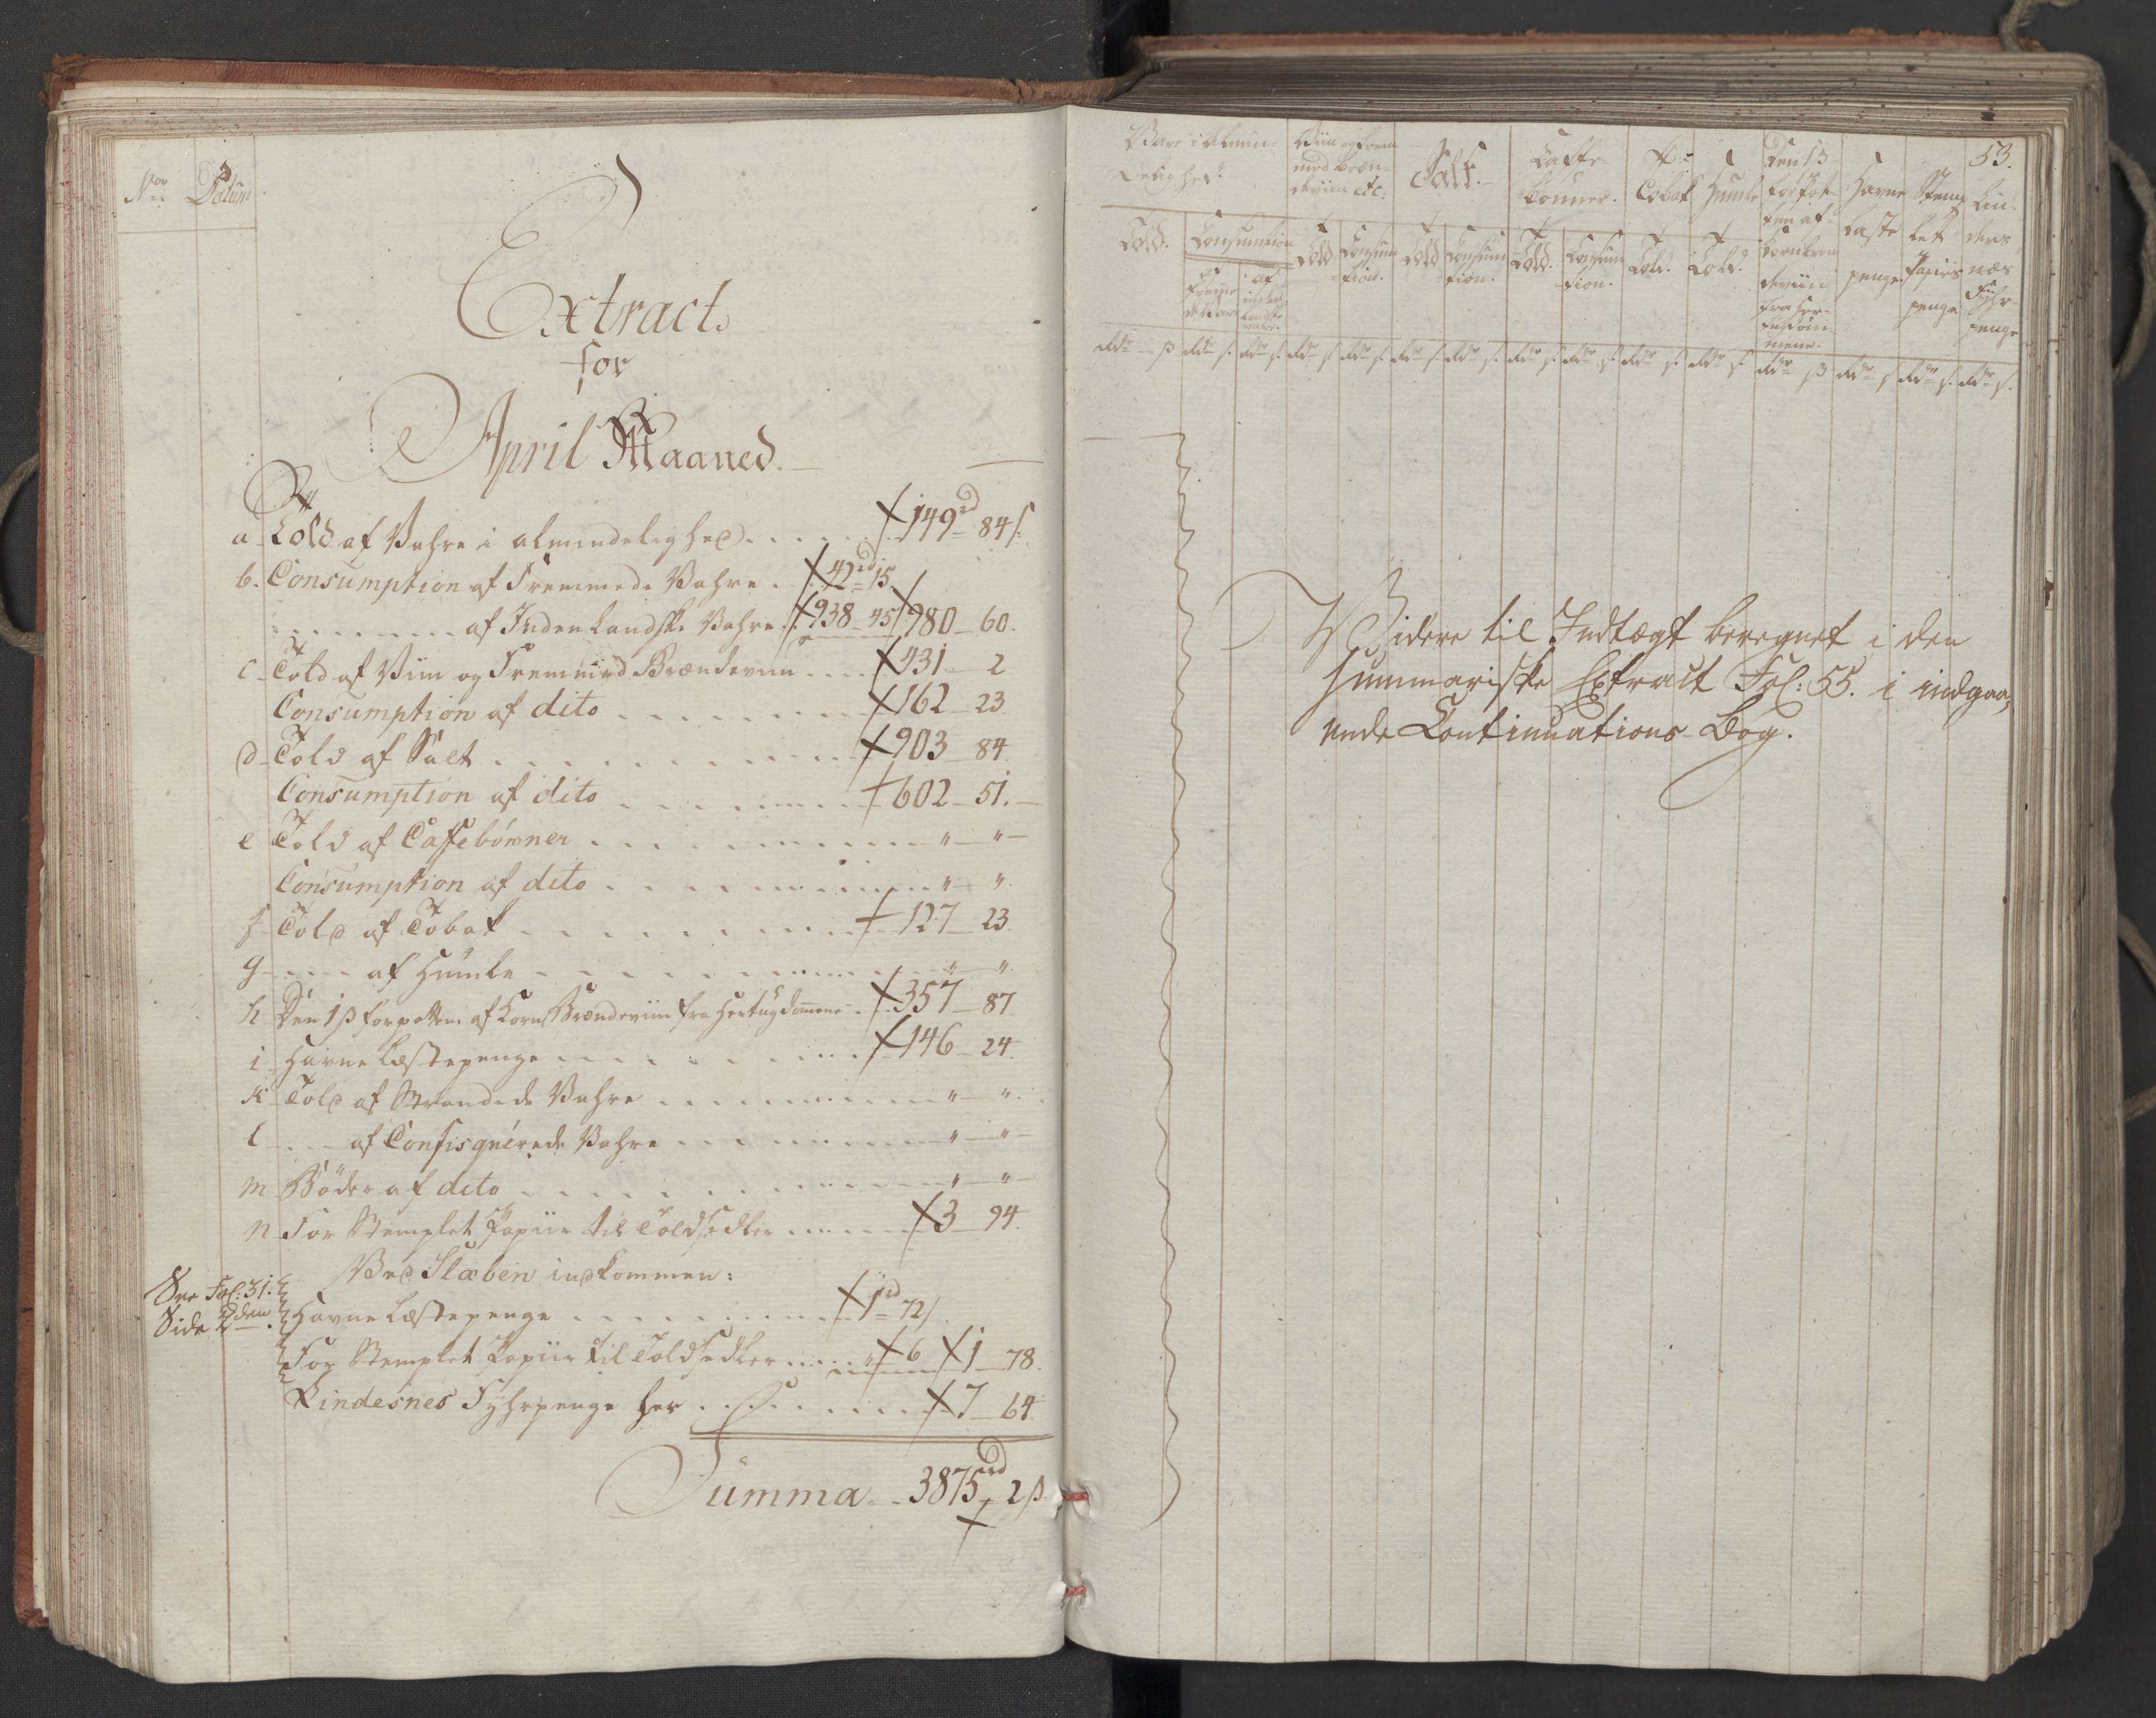 No: Datum
Extract
for
April Maaned.
a Told af Vahre i almindelighed . . . . . 149rd 84s.
b. Consumption af Fremmede Vahre . 42rd 15
. . . . . . af Indenlandske Vahre . 938 45 980 60.
c. Told af Viin og Fremmed Brændeviin . . . . 431 2
Consumption af dito . . . . . . . 162 23
d. Told af Salt . . . . . . . . . . . 903 84
Consumption af dito . . . . . . . 602 51.
e Told af Caffebønner . . . . . . . . . " "
Consumption af dito . . . . . . . . " "
f Told af Tobak . . . . . . . . . . 127 23.
g . . . . af Humle . . . . . . . . . . " "
h Den 1 ß for potten af Korn Brændeviin fra Hertugdømene . 357 87
i Havne Læstepenge . . . . . . . . . 146 24.
k Told af Strandede Vahre . . . . . . . . " "
l . . . af Confisqvérede Vahre . . . . . . . " "
m Böder af dito . . . . . . . . . . " "
n For Stemplet Papiir til Toldsedler . . . . . . 3 94.
Ved Slæben indkommen:
See Fol: 31.
Side 2den.
Havne Læstepenge . . . . . . . . . . 1rd 72s
For Stemplet Papiir til Toldsedler . . . . " 6 1 78.
Lindesnes Fyhrpenge her . . . . . . . . . 7 64.
Summa . . 3875rd 2ß.
53.
Vare i Almin-
delighed.
Viin og frem
med Bræn-
deviin etc.
Salt.
Caffe-
bønner.
Tobak
Humle
Den 1 ß
for Pot-
ten af
Kornbræn
deviin
fra Her-
tugdøm-
mene.
Havne
Læste
penge.
Stemp
let
Papiirs
penge
Lin-
ders
næs
Fyhr-
penge
Told. Consumtion Told Consum-
tion. Told Consum-
tion. Told. Consum-
tion. Told. Told.
Fremme
de Vare
af
inden
landske
Vare.
Rdr ß Rdr s. Rdr s. Rdr s Rdr s. Rdr s. Rdr s. Rdr s. Rdr s. Rdr s. Rdr s. Rdr ß Rdr s Rdr s. Rdr s.
Videre til Indtægt beregnet i den
Summariske Extract Fol: 55. i indgaa-
ende Continuations Bog.